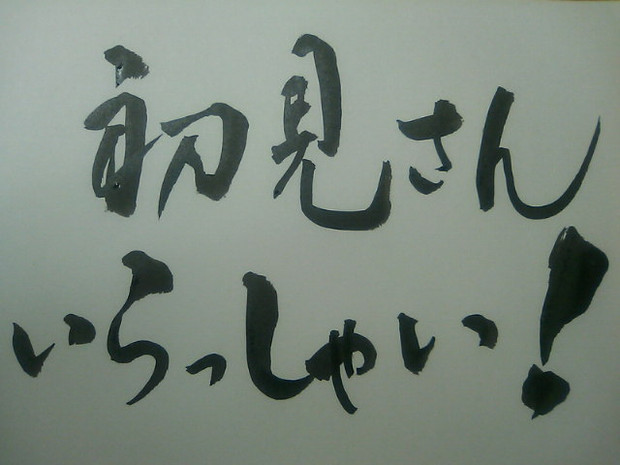 初見さん
いらっしゃい!